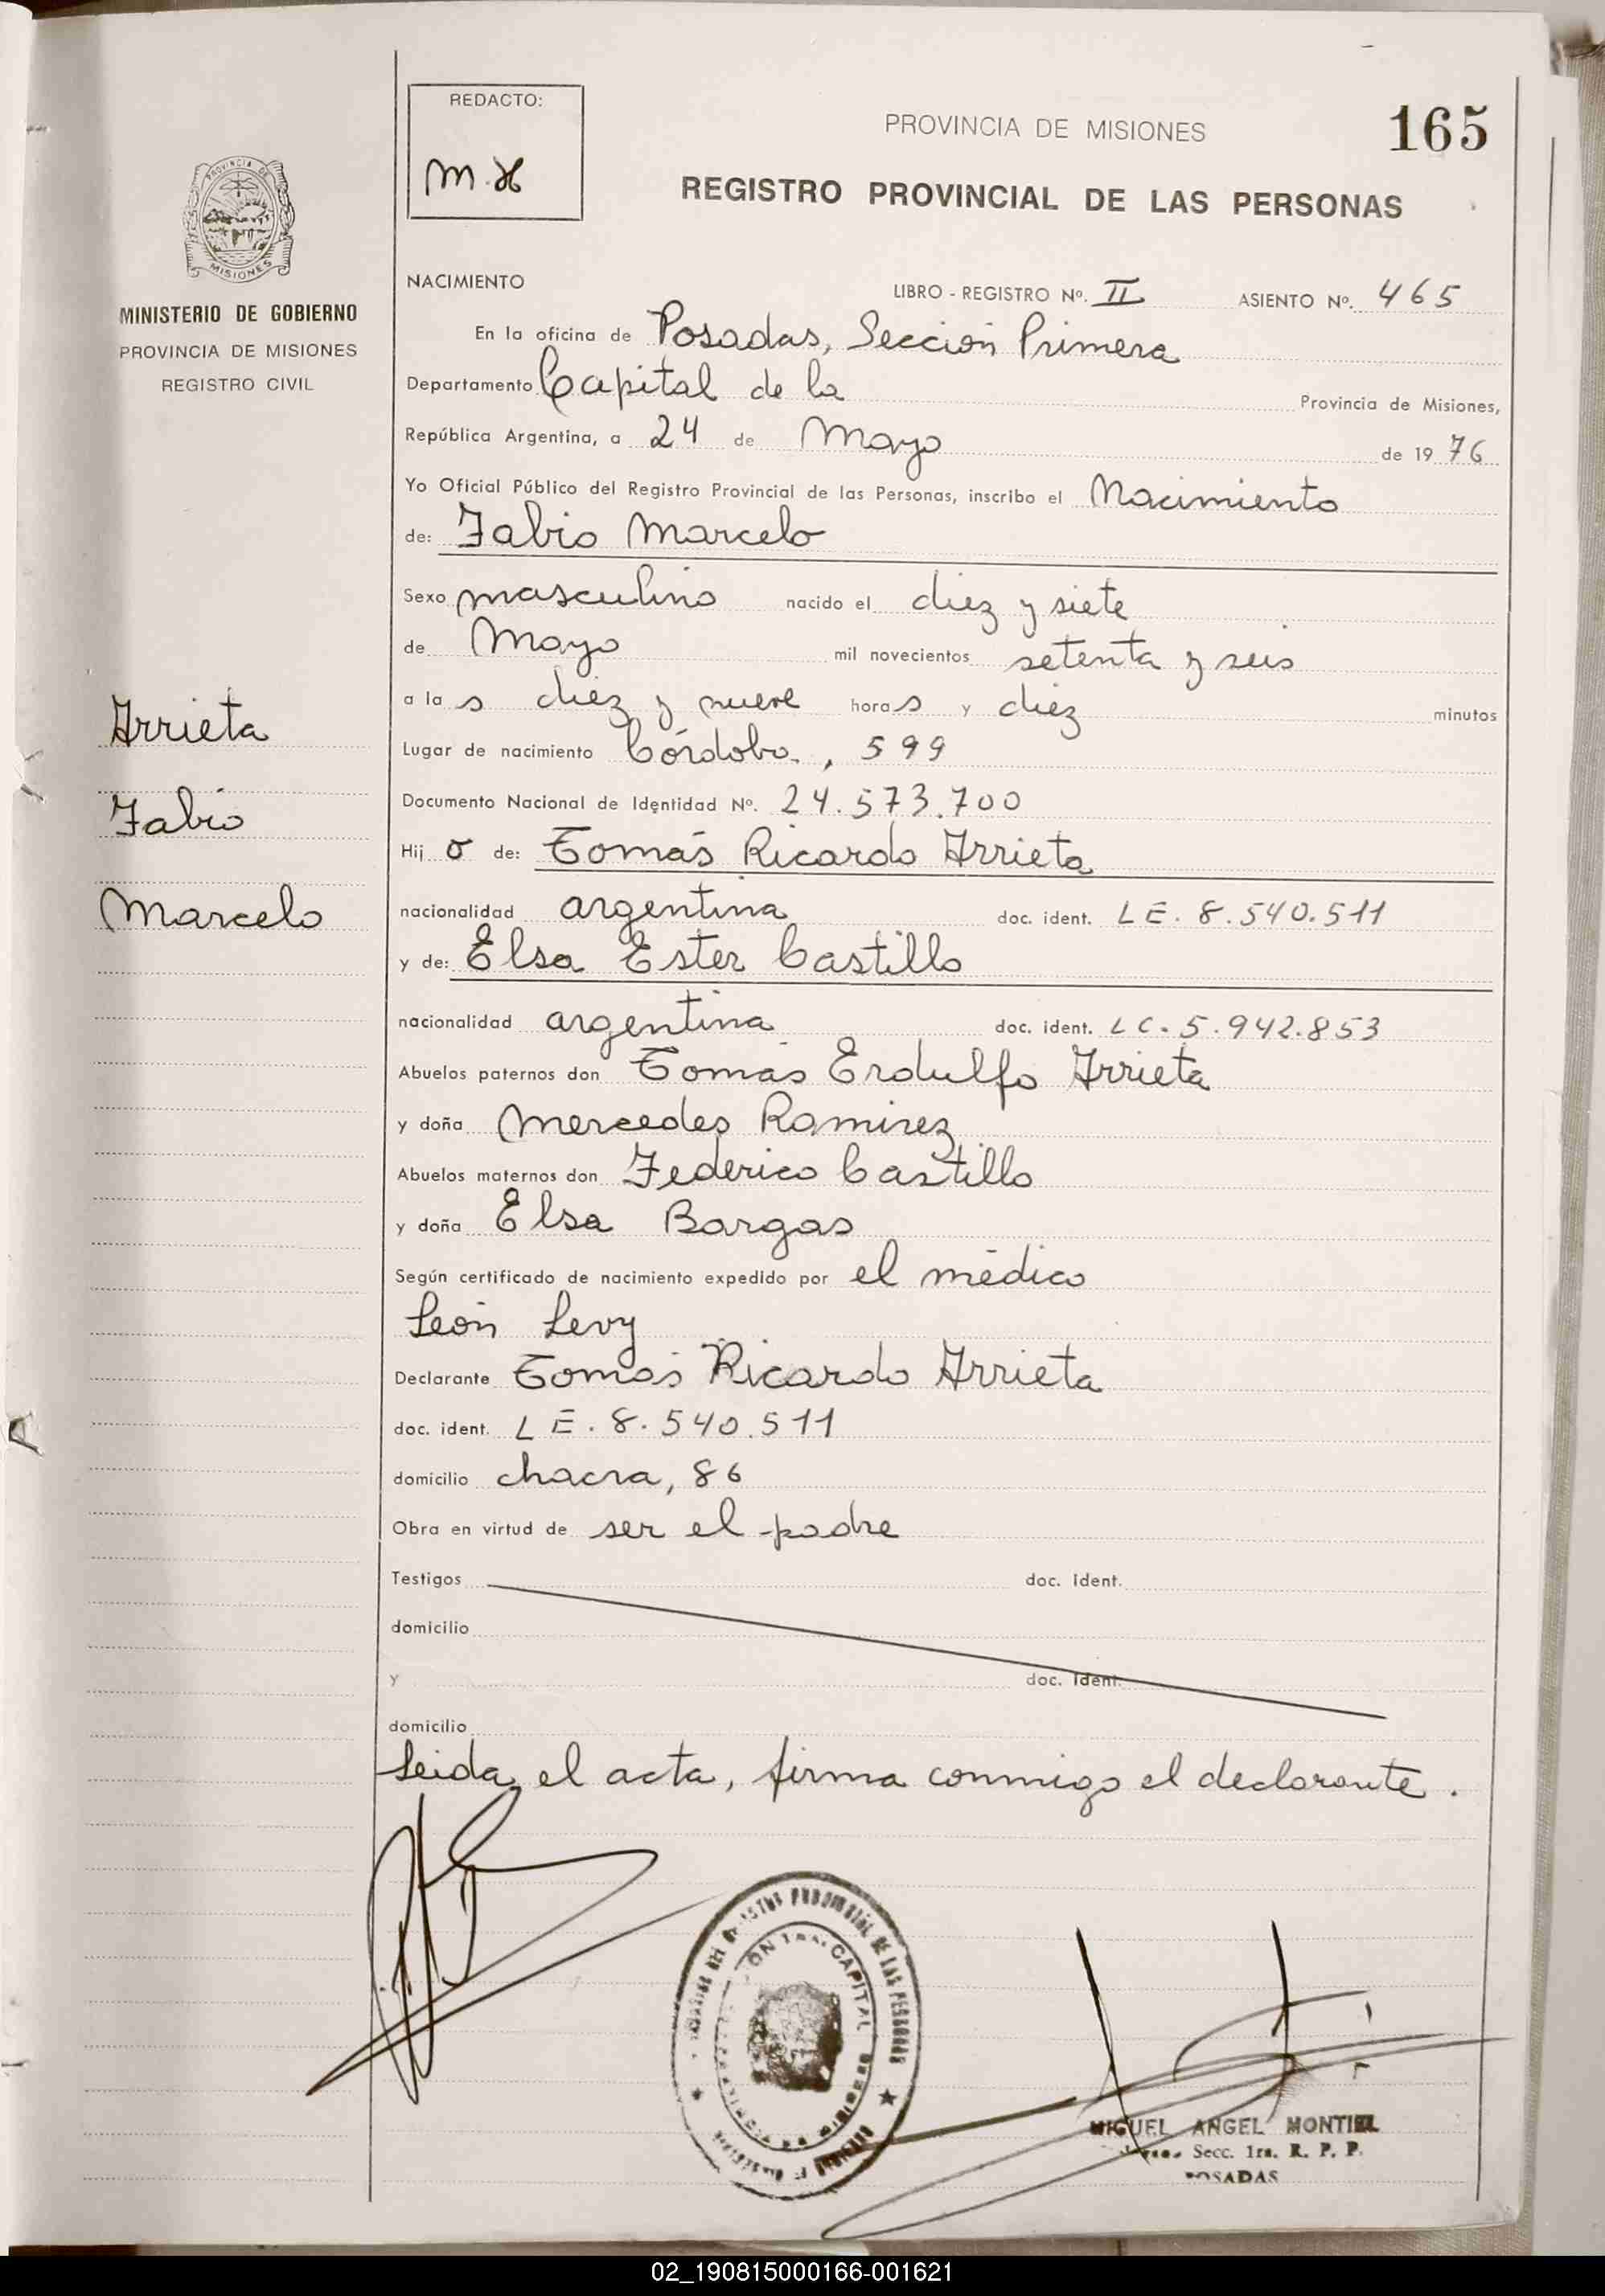 REDACTO:
M.H
PROVINCIA DE MISIONES
165
REGISTRO PROVINCIAL DE LAS PERSONAS
PROVINCIA DE
MISIONES
MINISTERIO DE GOBIERNO
PROVINCIA DE MISIONES
REGISTRO CIVIL
NACIMIENTO
LIBRO - REGISTRO Nº. II ASIENTO Nº. 465
En la oficina de Posadas, Sección Primera
Departamento Capital de la Provincia de Misiones,
República Argentina, a 24 de Mayo de 1976
Yo Oficial Público del Registro Provincial de las Personas, inscribo el Nacimiento
de: Fabio Marcelo
Sexo masculino nacido el diez y siete
de Mayo mil novecientos setenta y seis
a la s diez y nueve horas y diez minutos
Lugar de nacimiento Córdoba, 599
Documento Nacional de Identidad Nº. 24.573.700
Hij o de: Tomás Ricardo Arrieta
nacionalidad argentina doc. ident. LE. 8.540.511
y de: Elsa Ester Castillo
nacionalidad argentina doc. ident. LC. 5.942.853
Abuelos paternos don Tomás Erdulfo Arrieta
y doña Mercedes Ramirez
Abuelos maternos don Federico Castillo
y doña Elsa Bargas
Según certificado de nacimiento expedido por el médico
León Levy
Declarante Tomás Ricardo Arrieta
doc. ident. LE. 8.540.511
domicilio chacra, 86
Obra en virtud de ser el padre
Testigos doc. ident.
domicilio
y doc. ident.
domicilio
Leida el acta, firma conmigo el declarante.
Arrieta
Fabio
Marcelo
PROVINCIAL DE LAS PERSONAS
CAPITAL
MIGUEL ANGEL MONTIEL
Secc. 1ra. R. P. P.
POSADAS
02_190815000166-001621